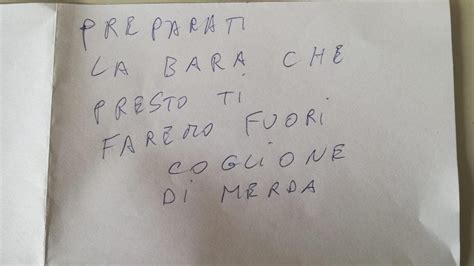 PREPARATI
LA BARA CHE
PRESTO TI
FAREMO FUORI
COGLIONE
DI MERDA